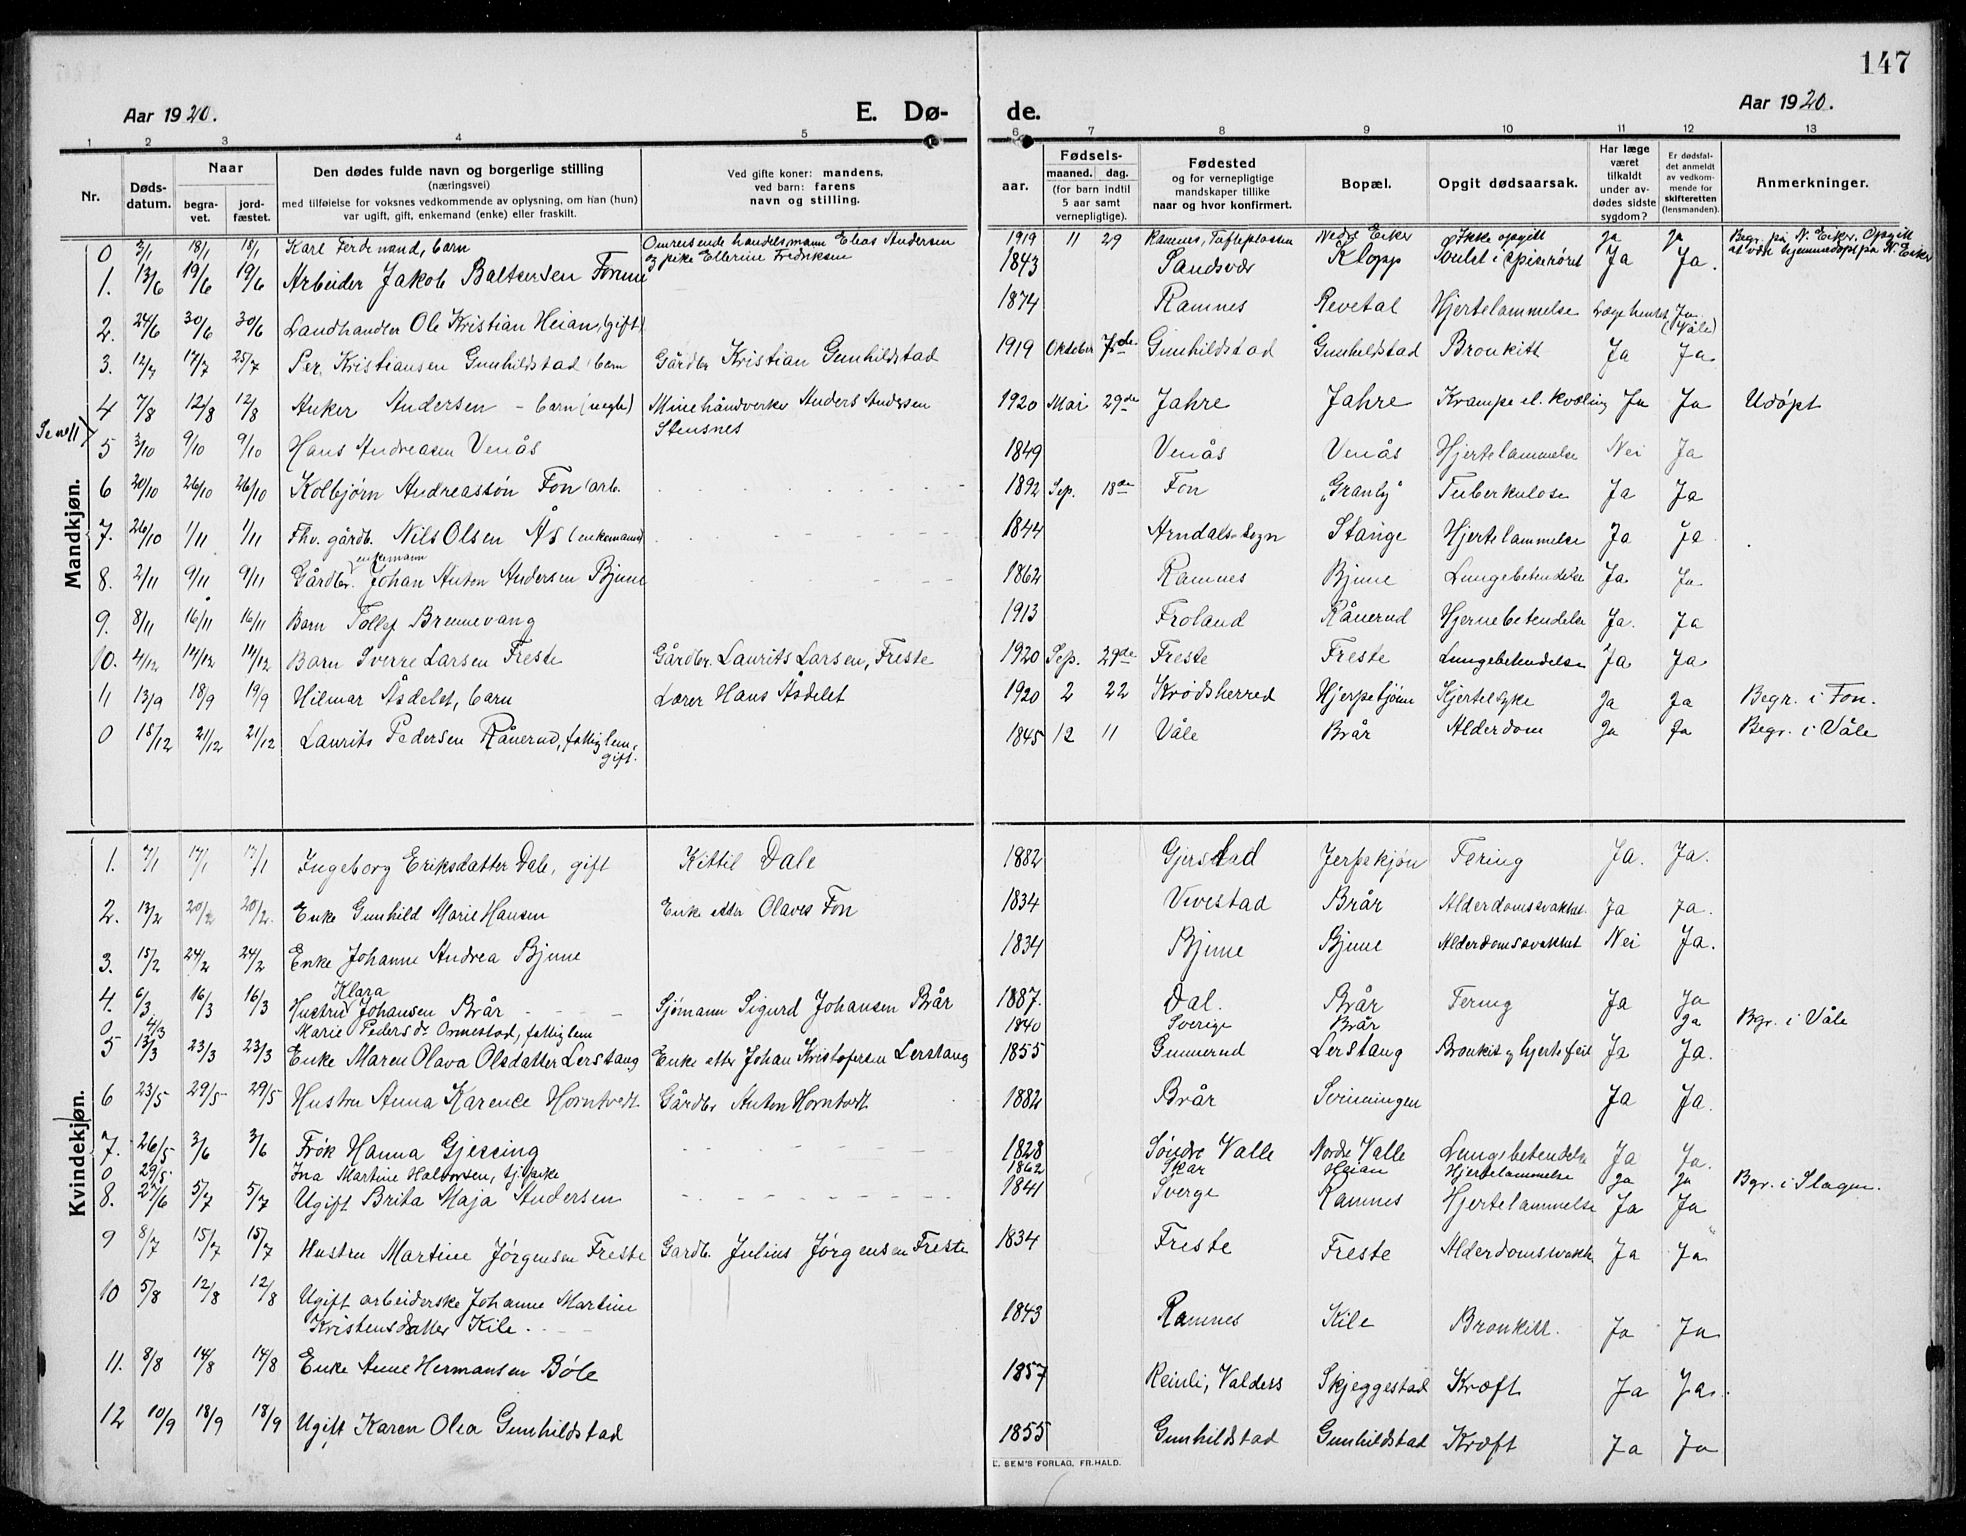 147
Aar 1920. E. Dø- de. Aar 1920.
1 2 3 4 5 6 7 8 9 10 11 12 13
Nr. Døds-datum. Naar begra-vet. jord-fæstet. Den dødes fulde navn og borgerlige stilling (næringsvei) med tilføielse for voksnes vedkommende av oplysning, om han (hun) var ugift, gift, enkemand (enke) eller fraskilt. Ved gifte koner: mandens, ved barn: farens navn og stilling. Fødsels- aar. maaned. dag. (for barn indtil 5 aar samt vernepligtige). Fødested og for vernepligtige mandskaper tillike naar og hvor konfirmert. Bopæl. Opgit dødsaarsak. Har læge været tilkaldt under av-dødes sidste sygdom? Er dødsfal-det anmeldt av vedkom-mende for skifteretten (lensmanden). Anmerkninger.
Mandkjøn.
0 3/1 18/1 18/1 Karl Ferdinand, barn Omreisende handelsmann Elias Andersen og pike Ellerine Fredriksen 1919 11 29 Ramnes, Tufteplassen Nedre Eiker Ikke opgitt Ja Ja Begr. på N. Eiker. Opgitt at være hjemmedøpt på N. Eiker
1. 13/6 19/6 19/6 Arbeider Jakob Baltsersen Forum 1843 Sandsvær Klopp Svulst i spiserøret Ja Ja.
2. 24/6 30/6 30/6 Landhandler Ole Kristian Heian, (gift) 1874 Ramnes Revetal Hjertelammelse Læge hentet Ja (Våle)
3. 12/7 17/7 25/7 Per Kristiansen Gunhildstad (barn Gårdbr Kristian Gunhildstad 1919 Oktober 7de Gunhildstad Gunhildstad Bronkitt Ja Ja
4 7/8 12/8 12/8 Anker Andersen - barn (uegte) Minehåndverker Anders Andersen Stensnes 1920 Mai 29de Jahre Jahre Krampe el. kvæling Ja Ja Udøpt
Se no 11
5 3/10 9/10 9/10 Hans Andreasen Venås 1849 Venås Venås Hjertelammelse Nei Ja
6 20/10 26/10 26/10 Kolbjørn Andreassøn Fon (arb. 1892 Sep. 18de Fon "Granly" Tuberkulose Ja Ja
7. 26/10 1/11 1/11 Fhv. gårdb. Nils Olsen Ås (enkemand) 1844 Arndals-Sogn Stange Hjertelammelse Ja Ja
8. 2/11 9/11 9/11 Gårdbr. enkemann Johan Anton Andersen Bjune 1862 Ramnes Bjune Lungebetendelse Ja Ja
9. 8/11 16/11 16/11 Barn Tollef Brennevang 1913 Froland Rånerud Hjernebetendelse Ja. Ja
10. 4/12 14/12 14/12 Barn Sverre Larsen Freste Gårdbr. Laurits Larsen, Freste 1920 Sep. 29de Freste Freste Lungebetendelse Ja Ja
11 13/9 18/9 19/9 Hilmar Åsdelet, barn Lærer Hans Åsdelet 1920 2 22 Krødsherred Hjerpetjønn Kjertelsyke Ja Ja Begr. i Fon.
0 15/12 21/12 21/12 Laurits Pedersen Rånerud, fattiglem, gift. 1845 12 11 Våle Brår Alderdom Ja Ja Begr. i Våle
Kvindekjøn.
1. 7/1 17/1 17/1 Ingeborg Eriksdatter Dale, gift Kittil Dale 1882 Gjerstad Jerpekjøn Tering Ja. Ja.
2. 13/2 20/2 20/2 Enke Gunhild Marie Hansen Enke etter Olaves Fon 1834 Vivestad Brår Alderdomssvakhet Ja Ja.
3. 15/2 24/2 24/2 Enke Johanne Andrea Bjune 1834 Bjune Bjune Alderdomssvakhet Nei Ja.
4. 6/3 16/3 16/3 Hustru Klara Johansen Brår Sjømann Sigurd Johansen Brår 1887. Dal. Brår Tering Ja Ja
0 4/3 Marie Pedersdr. Ormestad, fattiglem 1840 Sverige Brår Ja Bgr. i Våle
5 13/3 23/3 23/3 Enke Maren Olava Olsdatter Lerstang Enke etter Johan Kristofersen Lerstang 1855 Gunnerud Lerstang Bronkit og hjertefeil Ja Ja.
6 23/5 29/5 29/5 Hustru Anna Karence Horntvedt Gårdbr Anton Horntvedt 1882 Brår Svinningen Ja Ja.
7. 26/5 3/6 3/6 Frøk Hanna Gjessing 1828 Søndre Valle Nordre Valle Lungebetendelse Ja Ja.
0 29/5 Ina Martine Halvorsen, tj.pike 1862 Skar Heian Hjertelammelse Ja Ja Bgr. i Slagen.
8. 27/6 5/7 5/7 Ugift Brita Maja Andersen 1841 Sverge Ramnes Hjertelammelse Ja Ja
9 8/7 15/7 15/7 Hustru Martine Jørgensen Freste Gardb. Julius Jørgensen Freste 1834 Freste Freste Alderdomssvakh. Ja Ja
10 5/8 12/8 12/8 Ugift arbeiderske Johanne Martine Kristensdatter Kile. 1843 Ramnes Kile Bronkitt. Ja Ja
11. 8/8 14/8 14/8 Enke Anne Hermansen Bøle 1857 Reinli, Valders Skjeggestad Kræft Ja Ja.
12 10/9 18/9 18/9 Ugift Karen Olea Gunhildstad 1855 Gunhildstad Gunhildstad Kræft Ja Ja
E. SEM'S FORLAG, FR.HALD.